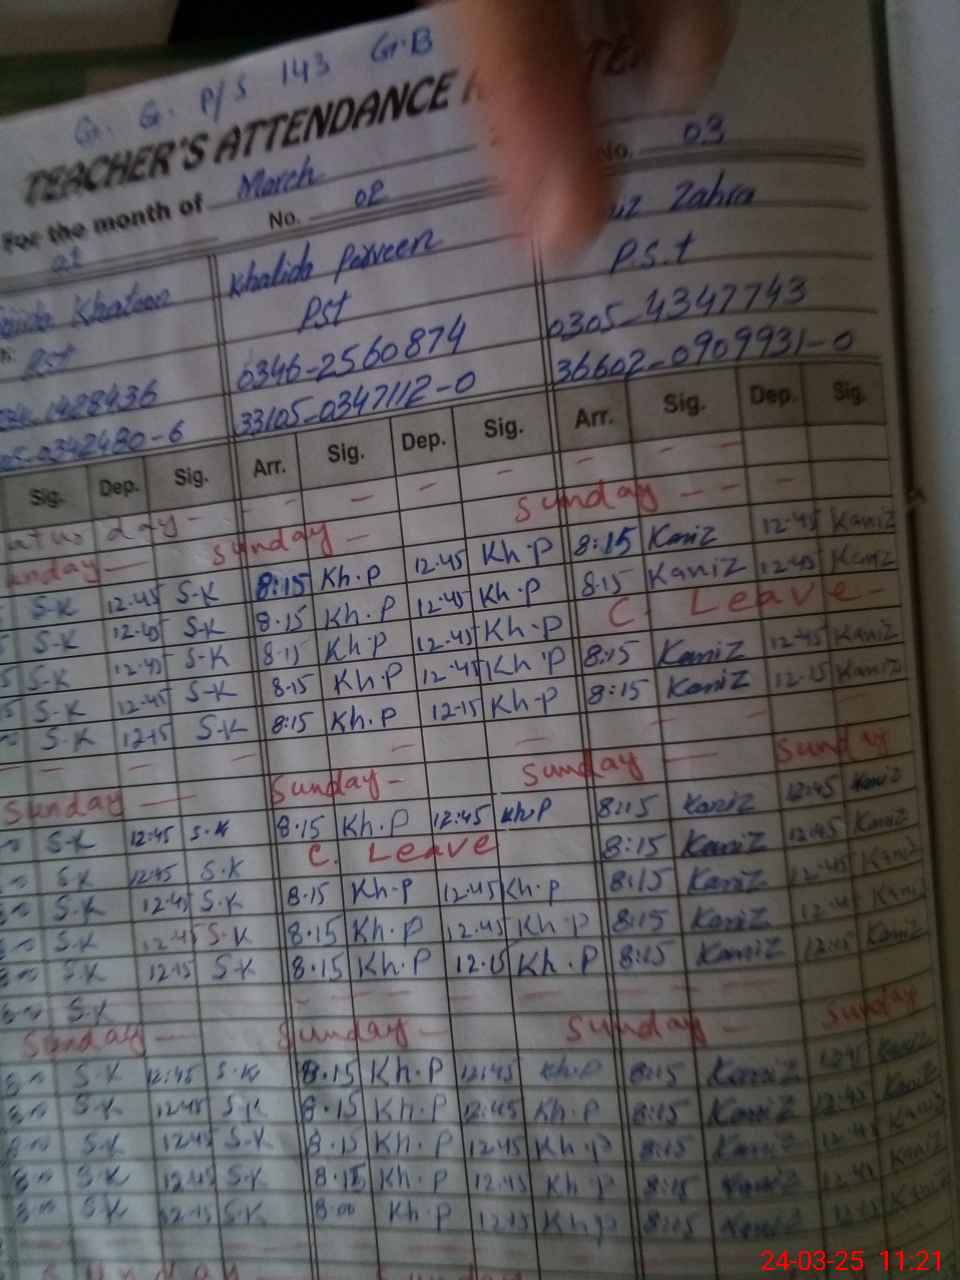 G. G. P/S 143 G.B
TEACHER'S ATTENDANCE
For the month of March
No. 02
No. 03
Khatoon
Khalida Parveen
Zahra
Pst
Pst
P.S.t
1428436
0346-2560874
0305-4347743
0342480-6
33105-0347112-0
36602-0909931-0
Sig. Dep. Sig. Arr. Sig. Dep. Sig. Arr. Sig. Dep. Sig.
Sunday - Sunday -
S-K 12.45 S-K 8:15 Kh.P 12.45 Kh.P 8:15 Kaniz 12.45 Kaniz
S-K 12.45 S-K 8.15 Kh.P 12.45 Kh.P 8.15 Kaniz 12.45 Kaniz
S-K 12.45 S-K 8.15 Kh.P 12.45 Kh.P C. Leave -
S-K 12.45 S-K 8.15 Kh.P 12.45 Kh.P 8:15 Kaniz 12.45 Kaniz
S-K 12.15 S-K 8:15 Kh.P 12.15 Kh.P 8:15 Kaniz 12.15 Kaniz
Sunday - Sunday - Sunday - Sunday
S-K 12:45 S-K 8.15 Kh.P 12:45 Kh.P 8:15 Kaniz 12:45 Kaniz
S-K 12:45 S-K C. Leave 8:15 Kaniz 12:45 Kaniz
S-K 12.45 S-K 8.15 Kh.P 12.45 Kh.P 8:15 Kaniz 12.45 Kaniz
S-K 12.45 S-K 8.15 Kh.P 12.45 Kh.P 8:15 Kaniz Kaniz
S-K 12.15 S-K 8.15 Kh.P 12.15 Kh.P 8:15 Kaniz 12.15 Kaniz
S-K
Sunday - Sunday - Sunday - Sunday
S-K 12:45 S-K 8.15 Kh.P 12.45 Kh.P 8:15 Kaniz 12.45 Kaniz
S-K 12.45 S-K 8.15 Kh.P 12.45 Kh.P 8:15 Kaniz 12.45 Kaniz
S-K 12.45 S-K 8.15 Kh.P 12.45 Kh.P 8:15 Kaniz 12.45 Kaniz
S-K 12.45 S-K 8.15 Kh.P 12.45 Kh.P 8:15 Kaniz 12.45 Kaniz
S-K 12.15 S-K 8.00 Kh.P 12.15 Kh.P 8:15 Kaniz 12.15 Kaniz
Sunday Sunday
24-03-25 11:21